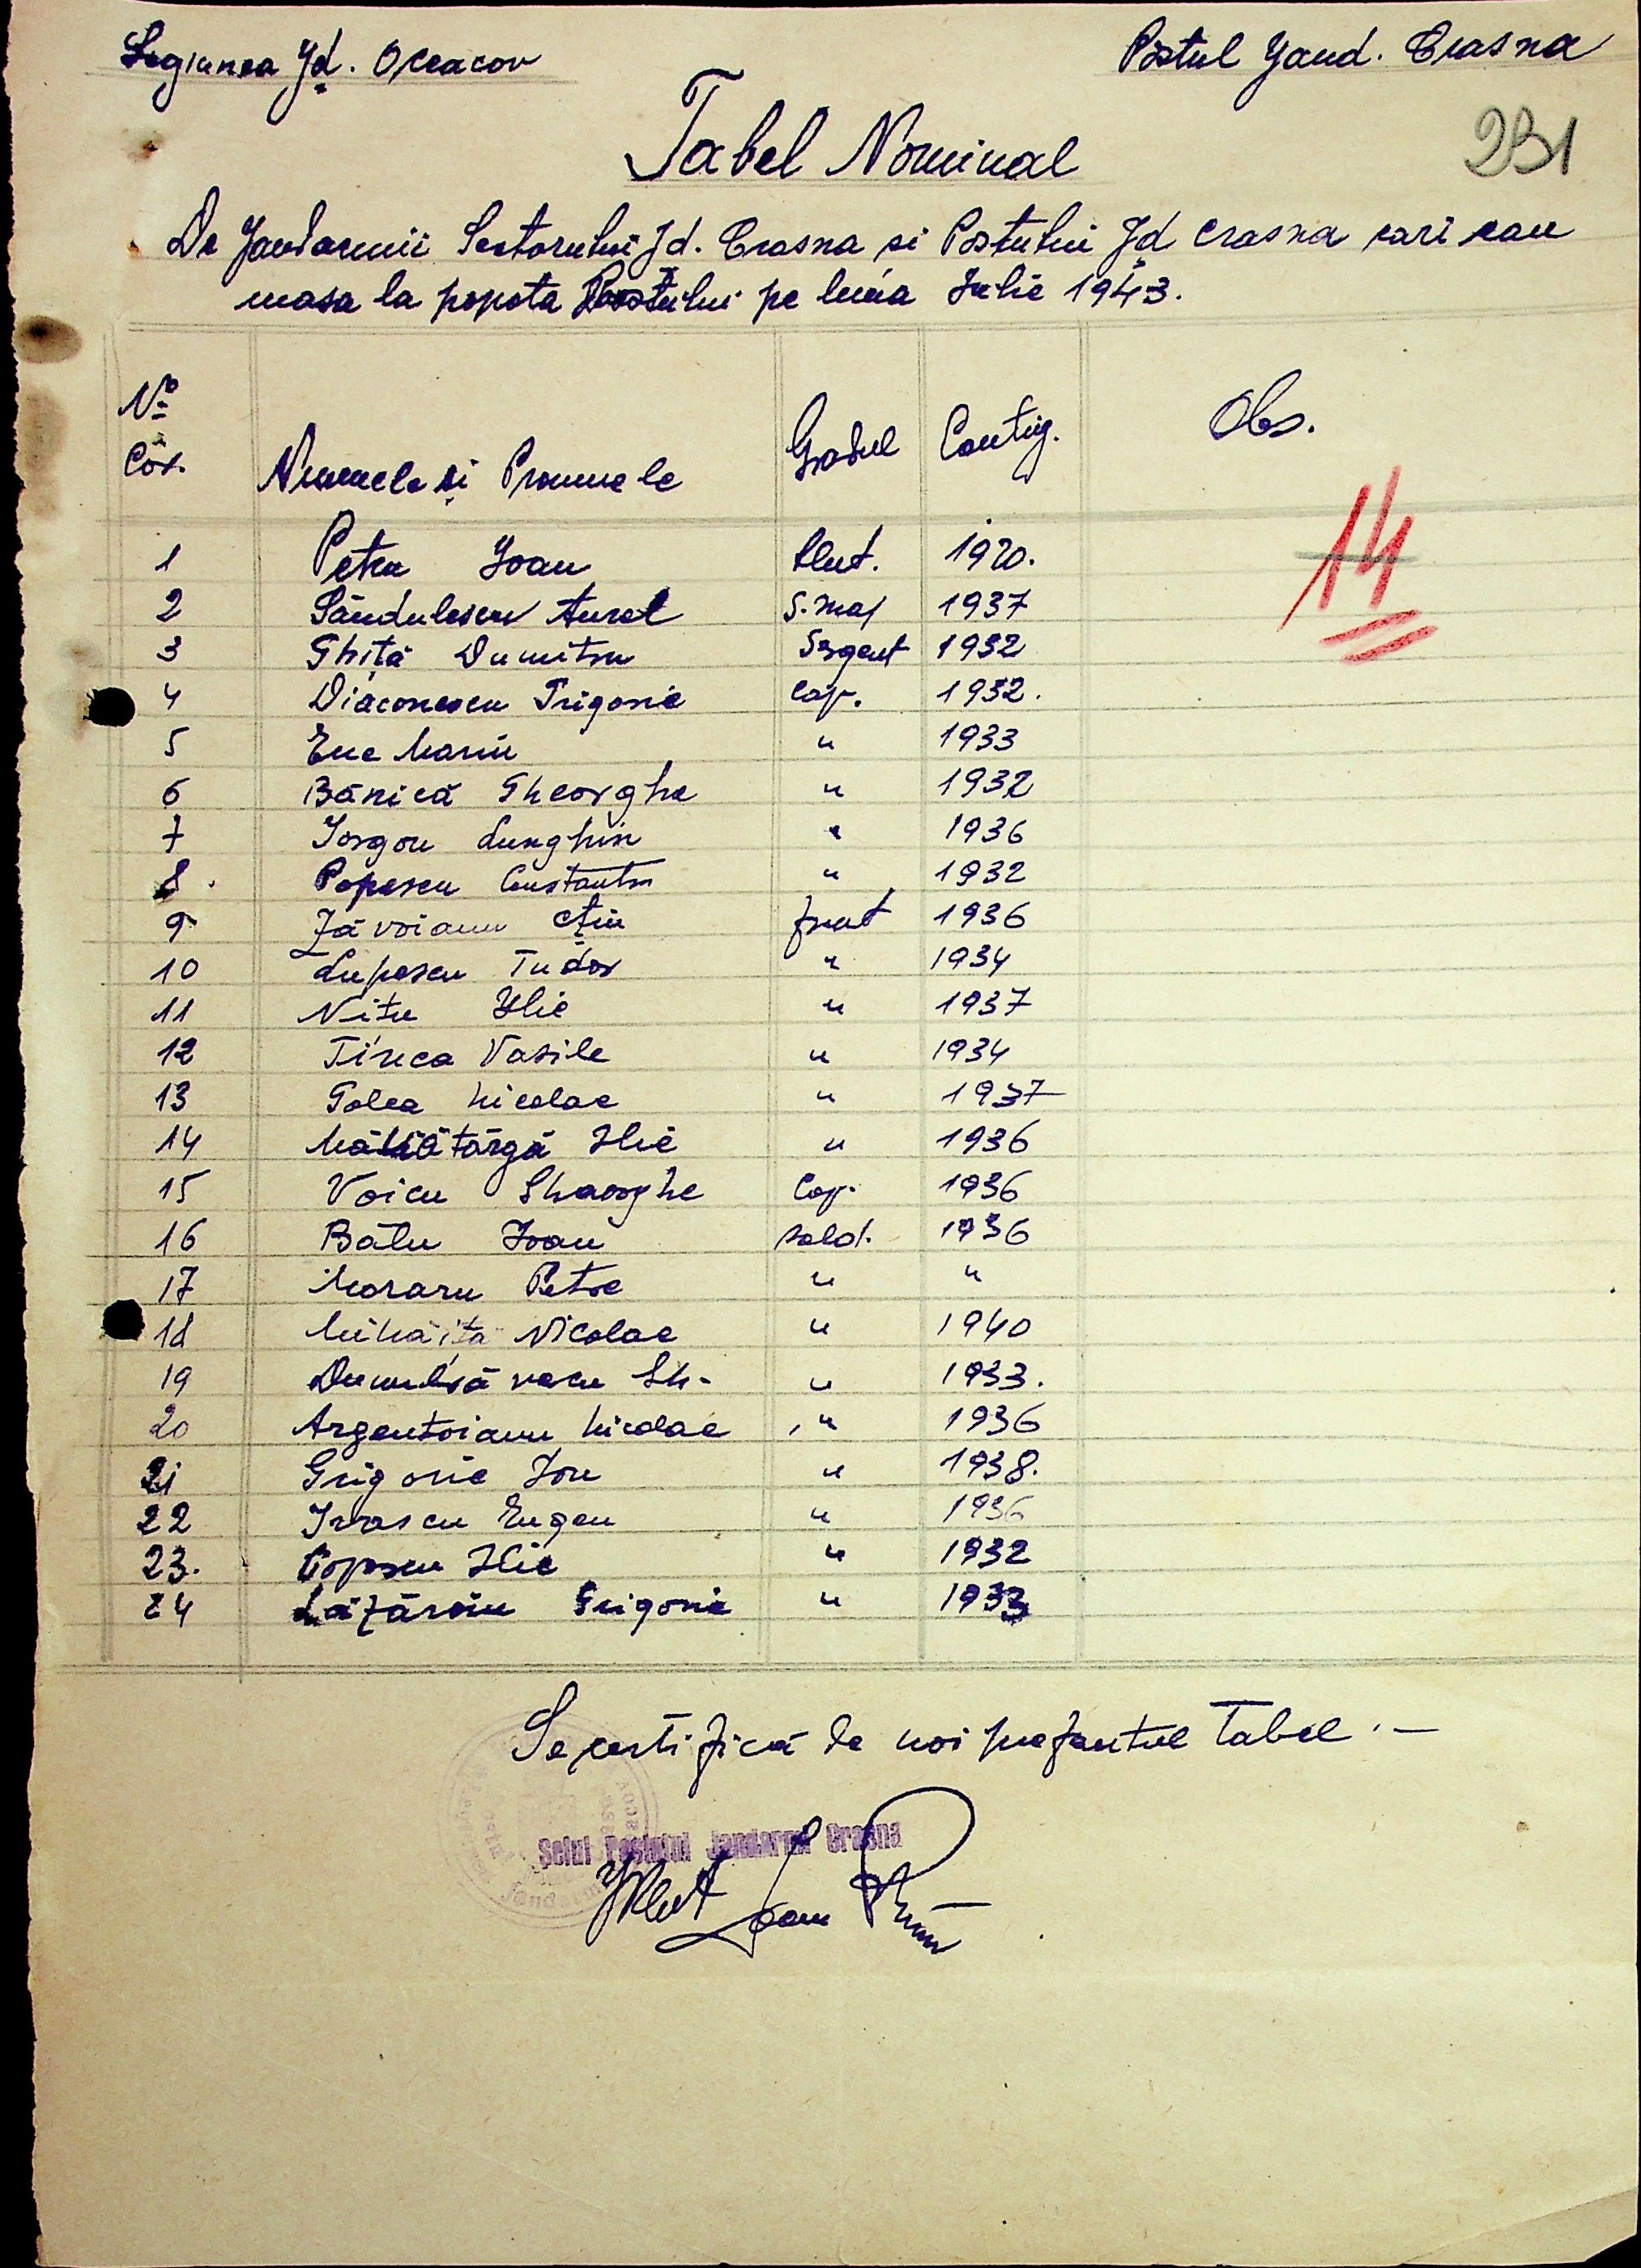 Legiunea Jd. Oceacov
Postul Jand. Crasna
231
Tabel Nominal
De Jandarmii Sectorului Jd. Crasna si Postului Jd Crasna cari iau
masa la popota Postului pe luna Iulie 1943.
No Cor. Numele si Pronumele Gradul Contig. Obs.
14
1 Petru Ioan Plut. 1920.
2 Săndulescu Aurel S. Maj 1937
3 Ghiță Dumitru Sergent 1932
4 Diaconescu Grigorie Cap. 1932.
5 Ene Marin " 1933
6 Bănică Gheorghe " 1932
7 Iorgou Lunghin " 1936
8 Popescu Constantin " 1932
9 Zăvoianu Ctin frunt 1936
10 Lupescu Tudor " 1934
11 Nitu Ilie " 1937
12 Tinca Vasile " 1934
13 Golea Nicolae " 1937
14 Ilie " 1936
15 Voicu Gheorghe Cap. 1936
16 Bălu Ioan sold. 1936
17 Moraru Petre " "
18 Mihăiță Nicolae " 1940
19 Gh. " 1933.
20 Argentoianu Nicolae " 1936
21 Grigorie Ion " 1938.
22 Ivascu Eugen " 1936
23. Popescu Ilie " 1932
24 Lăzăroiu Grigorie " 1933
Se certifică de noi prezentul Tabel.—
Șeful Postului Jandarmi Crasna